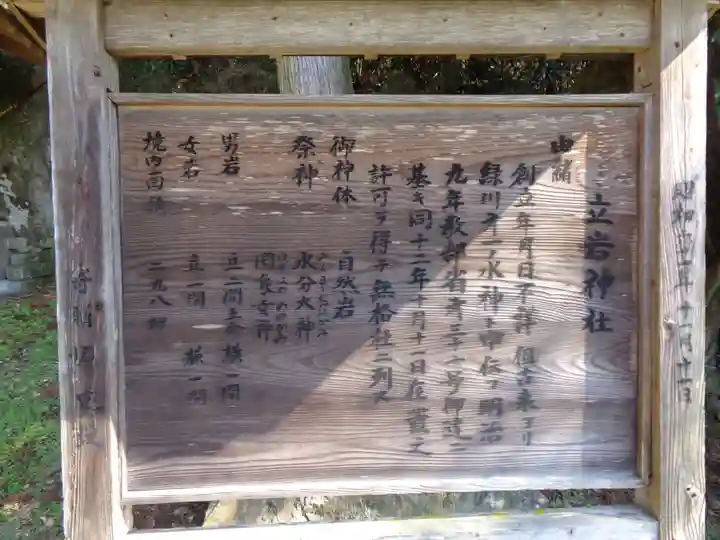 立岩神社
由緒
創立年月日不詳 但古来ヨリ
緑川第一ノ水神ト申伝フ明治
九年教部省第三十一号御達ニ
基キ同十二年十月十一日在置之
許可ヲ得テ無格社ニ列ス
御神体 自然岩
祭神 水分大神
岡象女神
男岩 立二間五合 横一間
女岩 立一間 横一間
境内面積 二九八坪